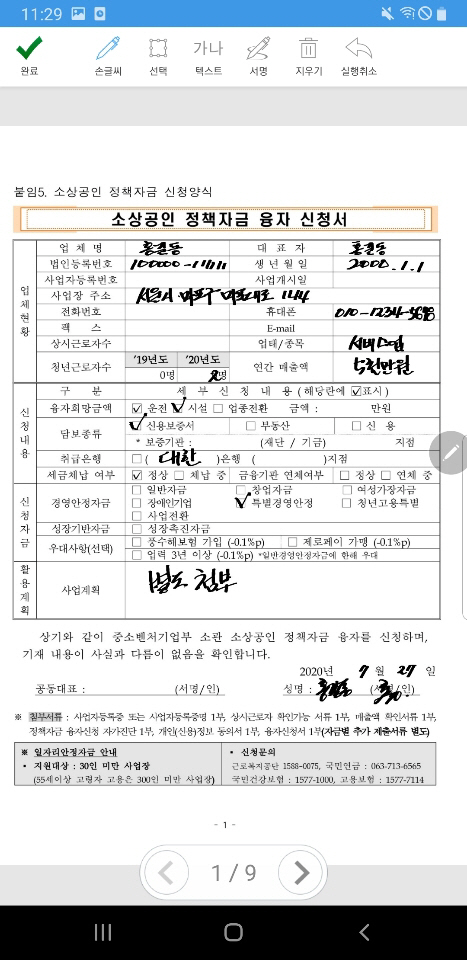 11:29
완료 손글씨 선택 가나 텍스트 서명 지우기 실행취소
붙임5. 소상공인 정책자금 신청양식
소상공인 정책자금 융자 신청서
업체현황
업 체 명 홍길동 대 표 자 홍길동
법인등록번호 100000-11111 생 년 월 일 2000.1.1
사업자등록번호 사업개시일
사업장 주소 서울시 마포구 마포대로 144
전화번호 휴대폰 010-1234-5678
팩 스 E-mail
상시근로자수 업태/종목 서비스업
청년근로자수 '19년도 '20년도 연간 매출액 5천만원
0명 2명
신청내용
구 분 세 부 신 청 내 용 (해당란에 ☑표시)
융자희망금액 ☑ 운전 ☑ 시설 ☐ 업종전환 금액 : 만원
담보종류 ☑ 신용보증서 ☐ 부동산 ☐ 신 용
* 보증기관 : (재단 / 기금) 지점
취급은행 ☐ ( 대한 )은행 ( )지점
세금체납 여부 ☑ 정상 ☐ 체납 중 금융기관 연체여부 ☐ 정상 ☐ 연체 중
신청자금
경영안정자금 ☐ 일반자금 ☐ 창업자금 ☐ 여성가장자금
☐ 장애인기업 ☑ 특별경영안정 ☐ 청년고용특별
☐ 사업전환
성장기반자금 ☐ 성장촉진자금
우대사항(선택) ☐ 풍수해보험 가입 (-0.1%p) ☐ 제로페이 가맹 (-0.1%p)
☐ 업력 3년 이상 (-0.1%p) *일반경영안정자금에 한해 우대
활용계획
사업계획 별도 첨부
상기와 같이 중소벤처기업부 소관 소상공인 정책자금 융자를 신청하며,
기재 내용이 사실과 다름이 없음을 확인합니다.
2020년 7 월 27 일
공동대표 : (서명/인) 성명 : 홍길동 (서명/인)
※ 첨부서류 : 사업자등록증 또는 사업자등록증명 1부, 상시근로자 확인가능 서류 1부, 매출액 확인서류 1부,
정책자금 융자신청 자가진단 1부, 개인(신용)정보 동의서 1부, 융자신청서 1부(자금별 추가 제출서류 별도)
※ 일자리안정자금 안내
• 지원대상 : 30인 미만 사업장
(55세이상 고령자 고용은 300인 미만 사업장)
• 신청문의
근로복지공단 1588-0075, 국민연금 : 063-713-6565
국민건강보험 : 1577-1000, 고용보험 : 1577-7114
- 1 -
1 / 9